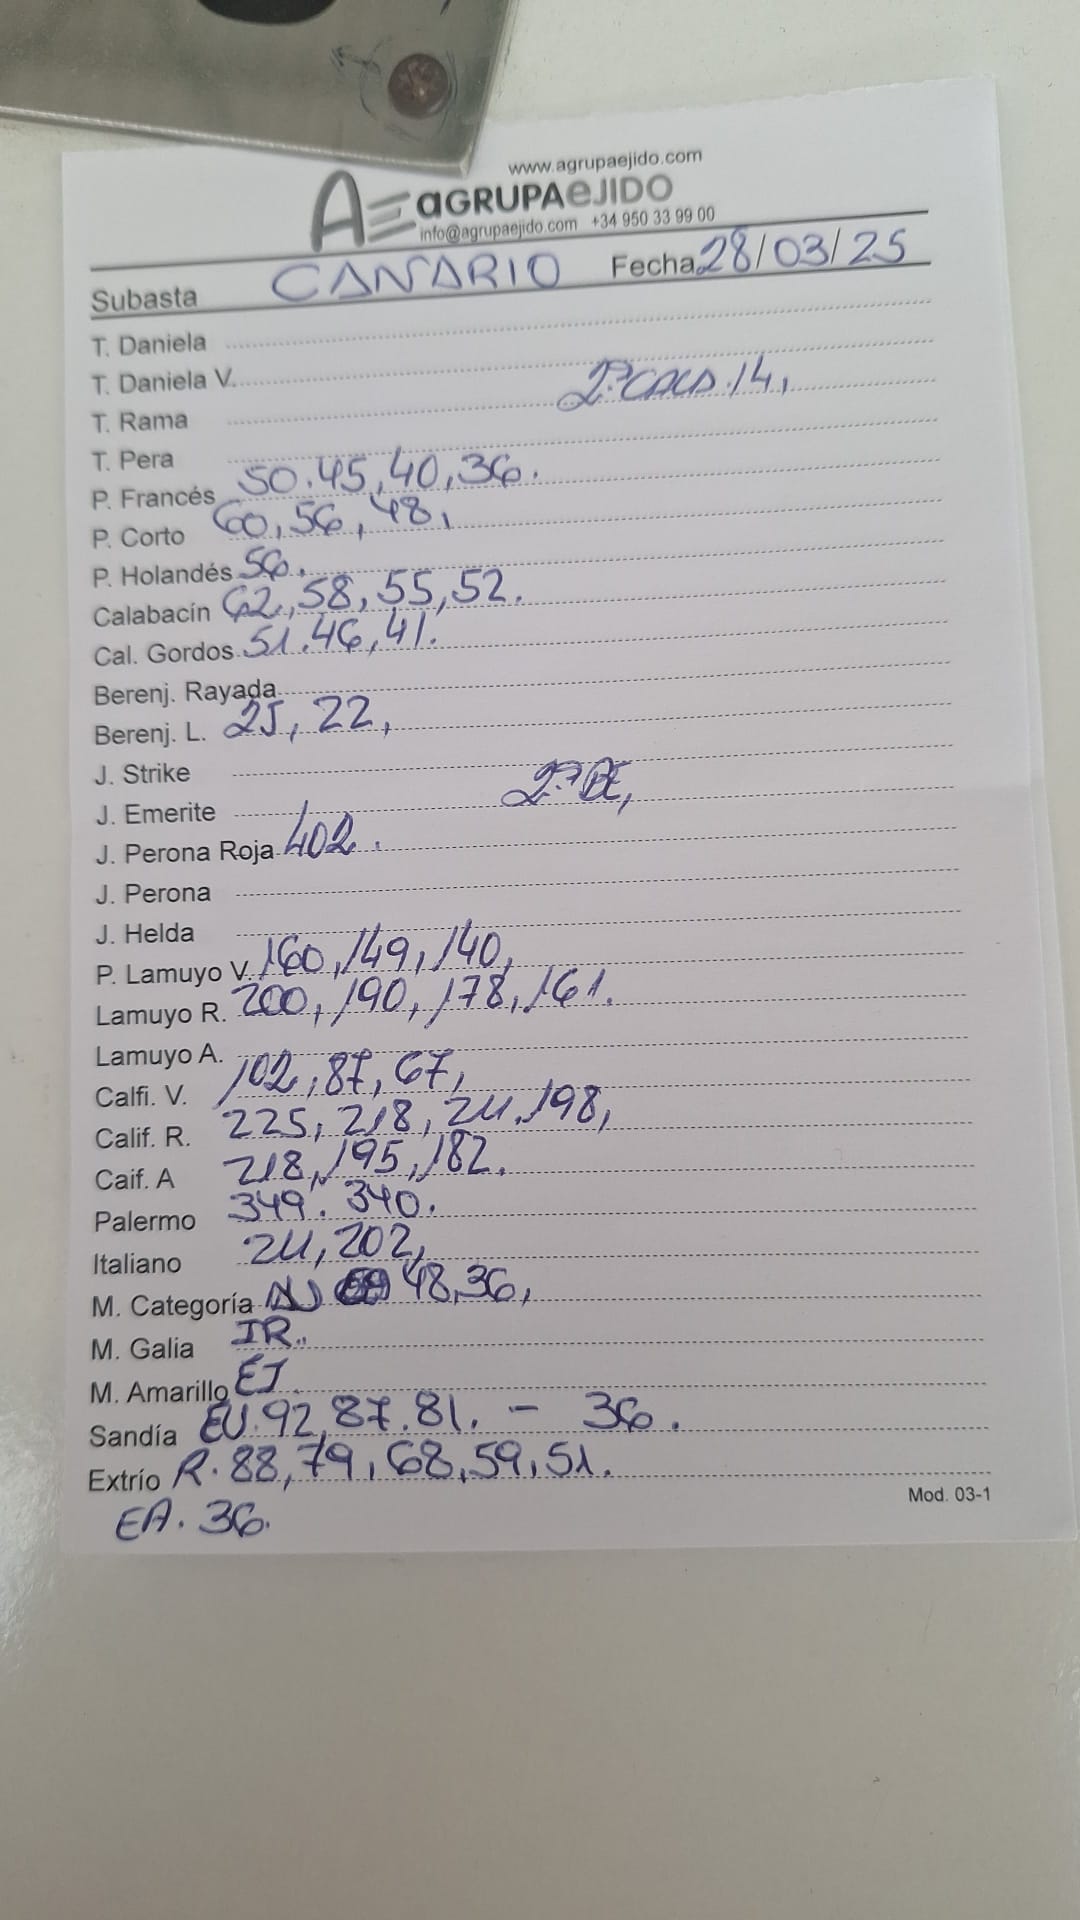 www.agrupaejido.com
AGRUPAEJIDO
info@agrupaejido.com +34 950 33 99 00
Subasta CANARIO Fecha 28/03/25
T. Daniela
T. Daniela V.
T. Rama 2ª CALA. 14,
T. Pera
P. Francés 50. 45, 40, 36.
P. Corto 60, 56, 48,
P. Holandés 56.
Calabacín 62, 58, 55, 52.
Cal. Gordos 51. 46, 41.
Berenj. Rayada
Berenj. L. 25, 22,
J. Strike
J. Emerite 2ª BE,
J. Perona Roja 402.
J. Perona
J. Helda
P. Lamuyo V. 160, 149, 140,
Lamuyo R. 200, 190, 178, 161.
Lamuyo A.
Calfi. V. 102, 87, 67,
Calif. R. 225, 218, 211, 198,
Caif. A 218, 195, 182.
Palermo 349. 340.
Italiano 211, 202,
M. Categoría 48, 36,
M. Galia IR.
M. Amarillo EJ.
Sandía EU. 92, 87. 81. - 36.
Extrío R. 88, 79, 68, 59, 51.
EA. 36.
Mod. 03-1